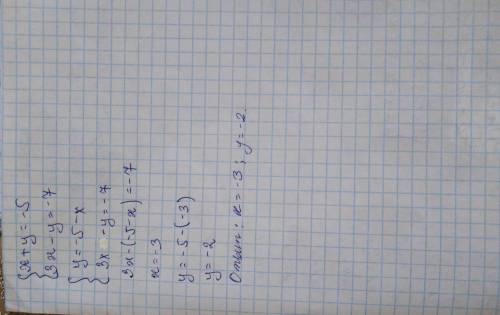 { x + y = -5
{ 3x - y = -7
{ y = -5 - x
{ 3x - y = -7
3x - (-5 - x) = -7
x = -3
y = -5 - (-3)
y = -2
Ответ: x = -3; y = -2.